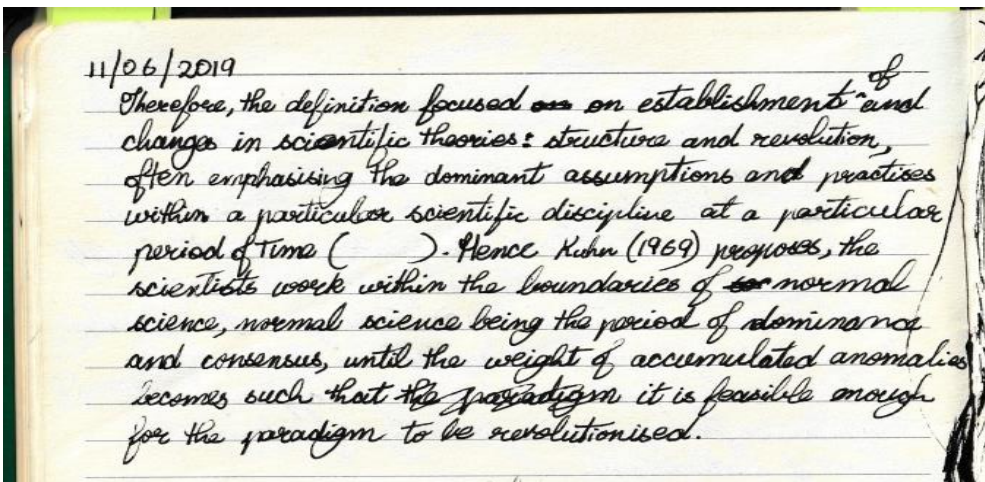 11/06/2019
Therefore, the definition focused on establishment of and
changes in scientific theories: structure and revolution,
often emphasising the dominant assumptions and practises
within a particular scientific discipline at a particular
period of Time (      ). Hence Kuhn (1969) proposes, the
scientists work within the boundaries of normal
science, normal science being the period of dominance
and consensus, until the weight of accumulated anomalies
becomes such that the paradigm it is feasible enough
for the paradigm to be revolutionised.